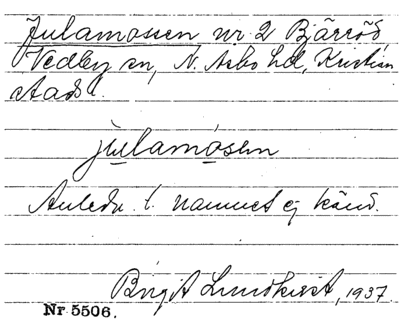 Julamossen nr. 2 Bjärröd
Vedby sn, N. Åsbo hd, Kristian
stads.
julamosen
Anledn. t. namnet ej känd.
Birgit Lundkvist, 1937
Nr 5506.